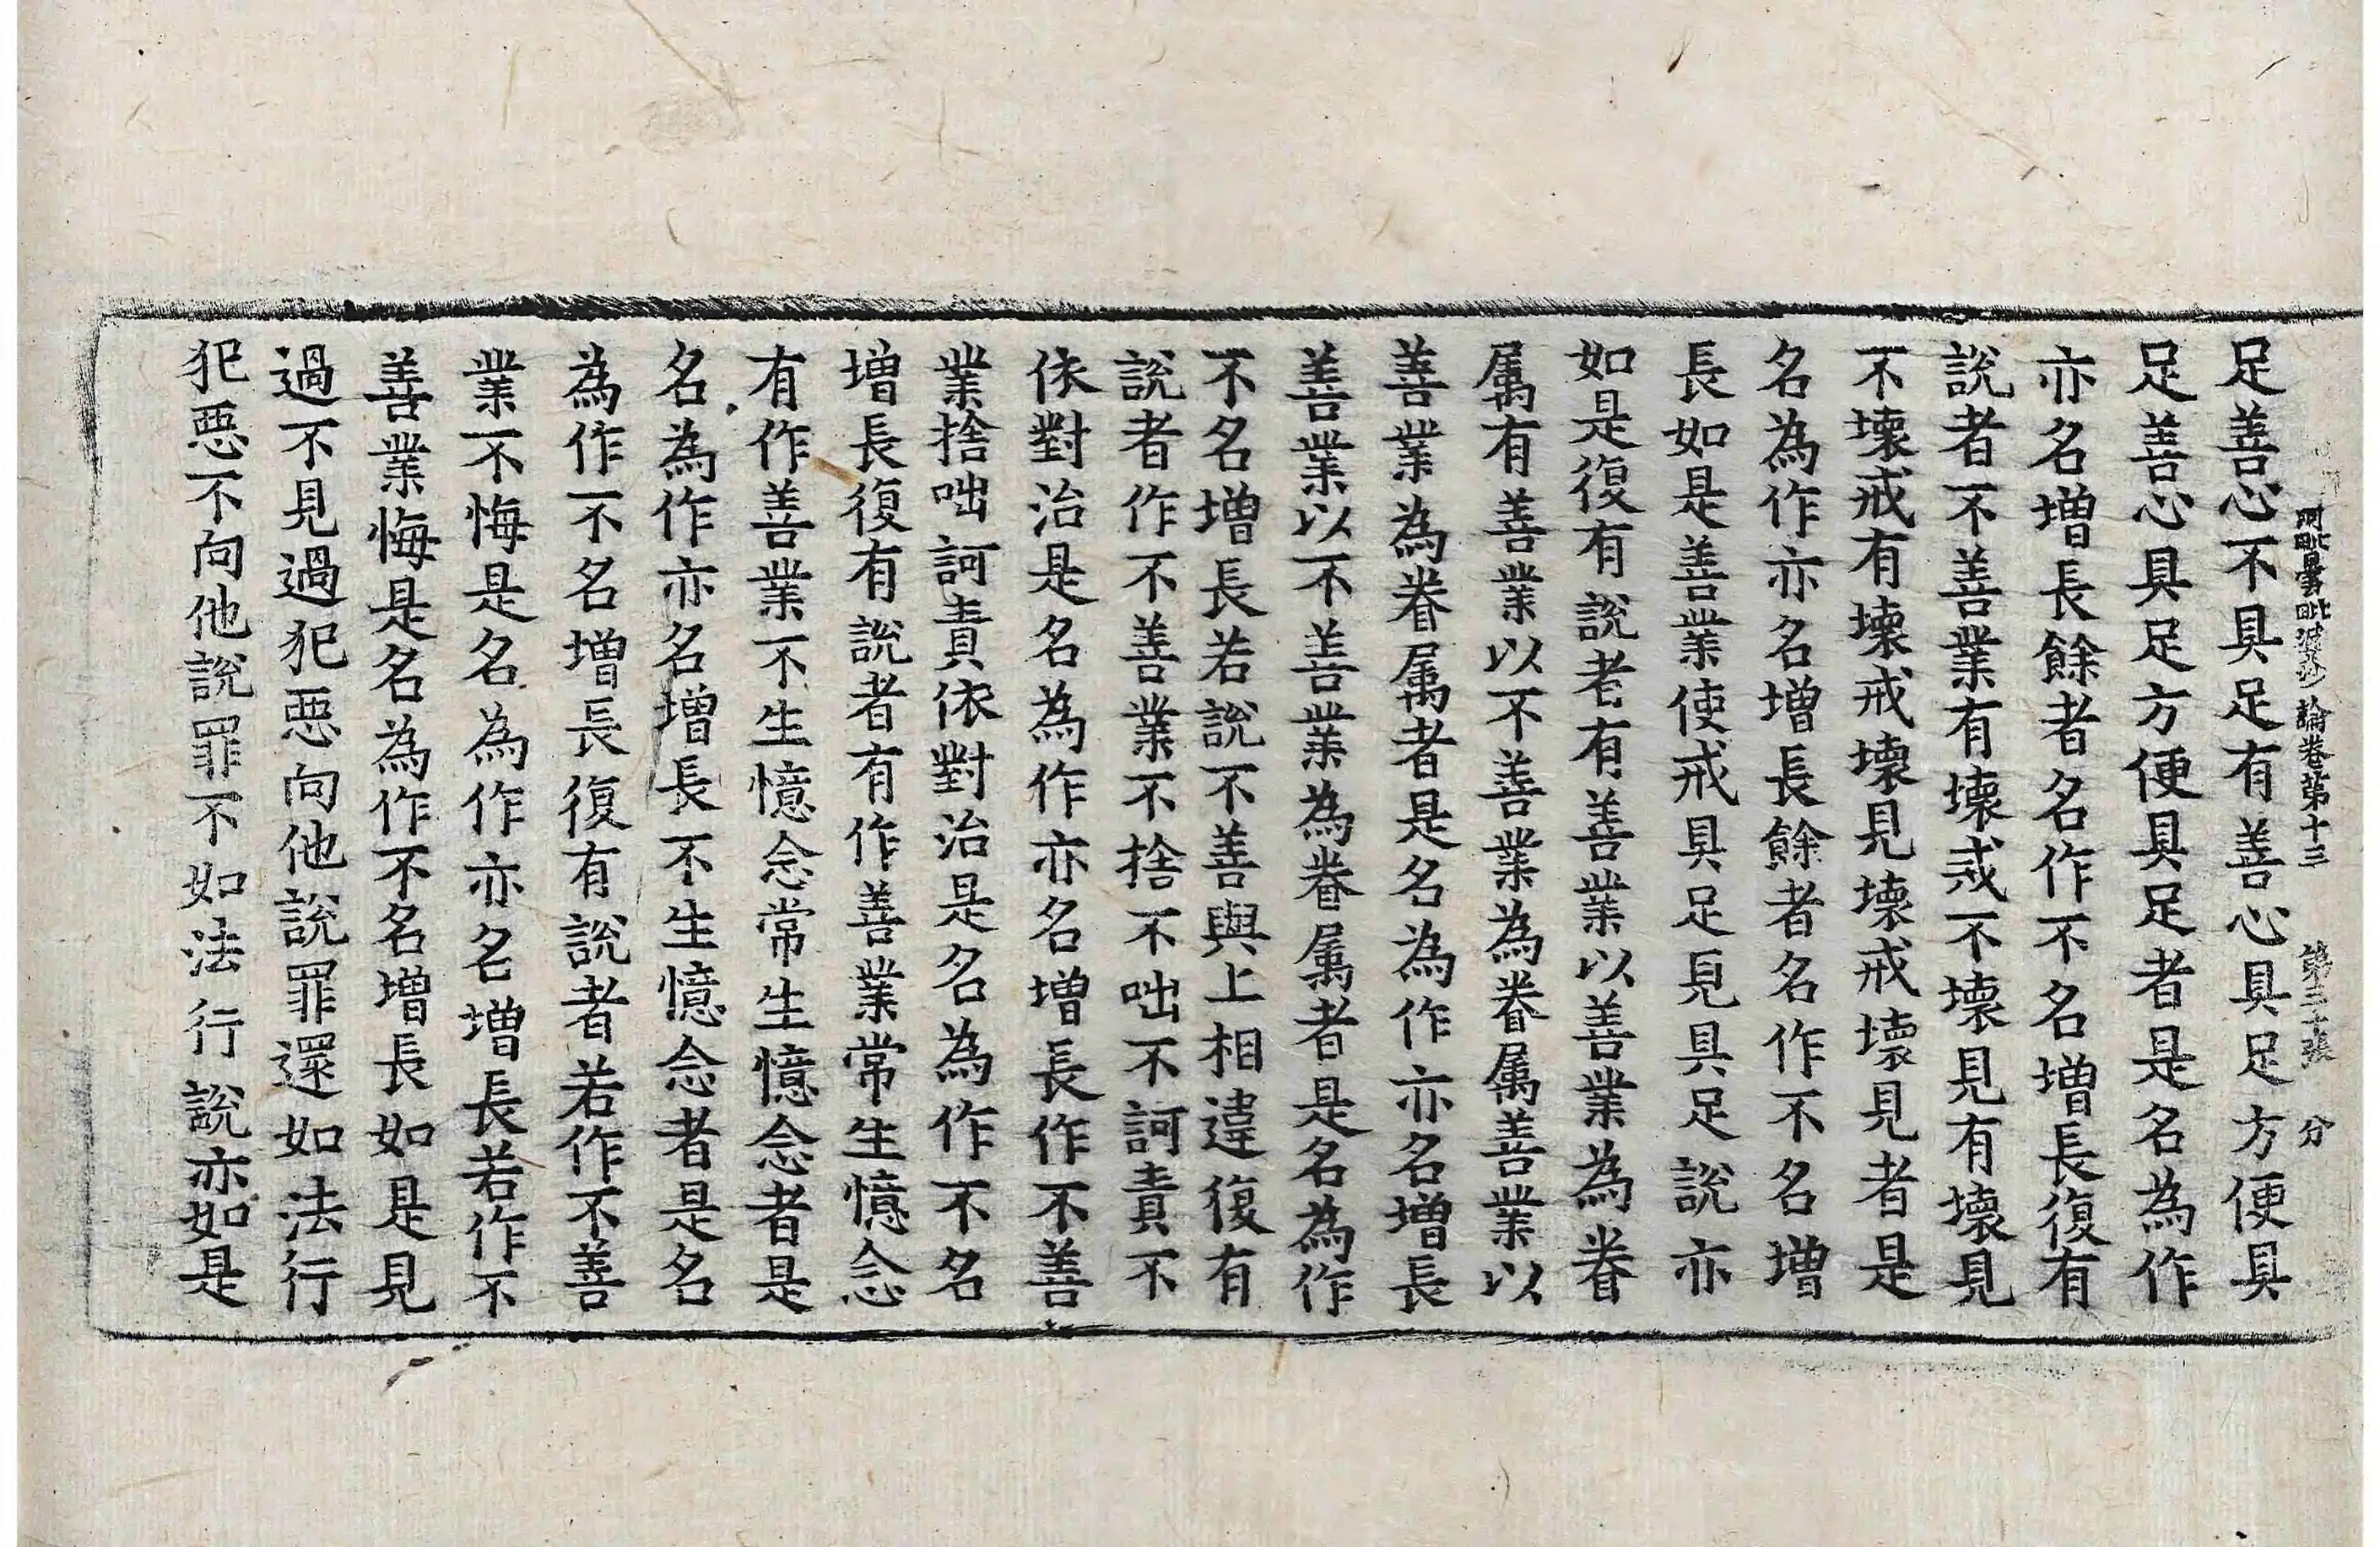 阿毗曇毗婆沙論卷第十三 第三張 分
足善心不具足有善心具足方便具
足善心具足方便具足者是名為作
亦名增長餘者名作不名增長復有
說者不善業有壞戒不壞見有壞見
不壞戒有壞戒壞見壞戒壞見者是
名為作亦名增長餘者名作不名增
長如是善業使戒具足見具足說亦
如是復有說者有善業以善業為眷
屬有善業以不善業為眷屬善業以
善業為眷屬者是名為作亦名增長
善業以不善業為眷屬者是名為作
不名增長若說不善與上相違復有
說者作不善業不捨不咄不訶責不
依對治是名為作亦名增長作不善
業捨咄訶責依對治是名為作不名
增長復有說者有作善業常生憶念
有作善業不生憶念常生憶念者是
名為作亦名增長不生憶念者是名
為作不名增長復有說者若作不善
業不悔是名為作亦名增長若作不
善業悔是名為作不名增長如是見
過不見過犯惡向他說罪還如法行
犯惡不向他說罪不如法行說亦如是